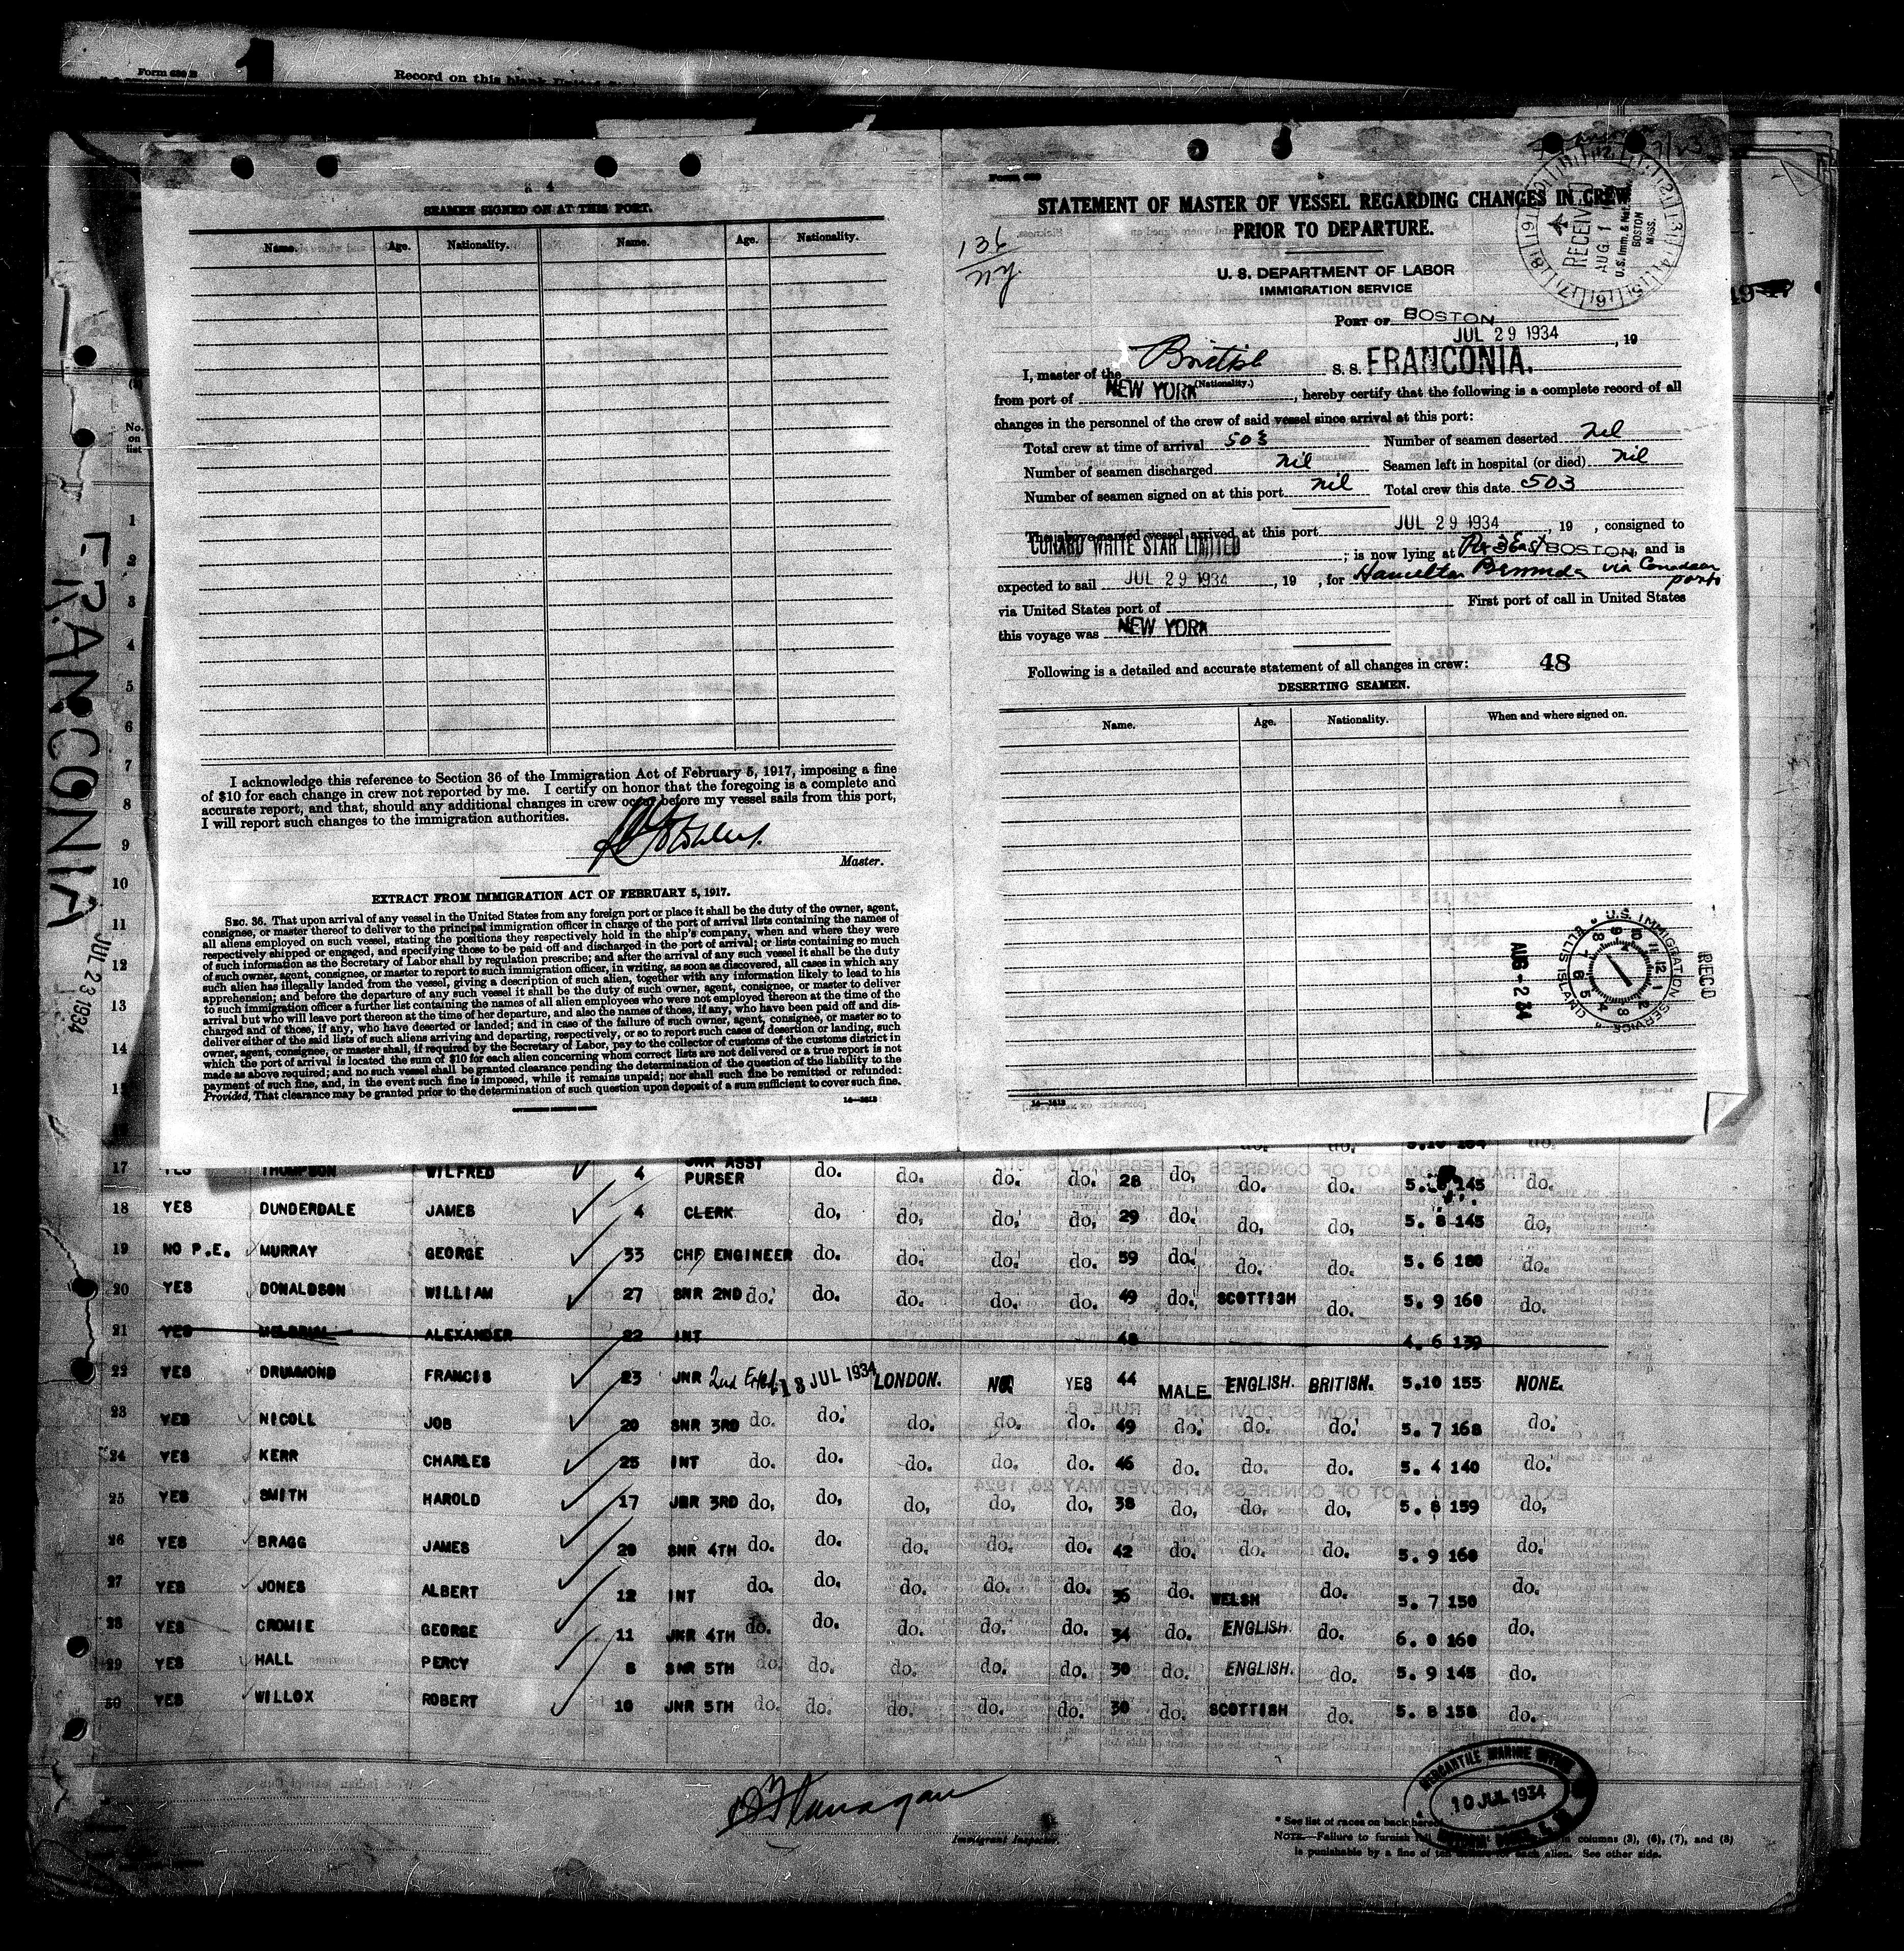 Form 680 B
1
Record on this blank United
SEAMEN SIGNED ON AT THIS PORT.
Name. Age. Nationality. Name. Age. Nationality.
I acknowledge this reference to Section 36 of the Immigration Act of February 5, 1917, imposing a fine
of $10 for each change in crew not reported by me. I certify on honor that the foregoing is a complete and
accurate report, and that, should any additional changes in crew occur before my vessel sails from this port,
I will report such changes to the immigration authorities.
Master.
EXTRACT FROM IMMIGRATION ACT OF FEBRUARY 5, 1917.
SEC. 36. That upon arrival of any vessel in the United States from any foreign port or place it shall be the duty of the owner, agent,
consignee, or master thereof to deliver to the principal immigration officer in charge of the port of arrival lists containing the names of
all aliens employed on such vessel, stating the positions they respectively hold in the ship's company, when and where they were
respectively shipped or engaged, and specifying those to be paid off and discharged in the port of arrival; or lists containing so much
of such information as the Secretary of Labor shall by regulation prescribe; and after the arrival of any such vessel it shall be the duty
of such owner, agent, consignee, or master to report to such immigration officer, in writing, as soon as discovered, all cases in which any
such alien has illegally landed from the vessel, giving a description of such alien, together with any information likely to lead to his
apprehension; and before the departure of any such vessel it shall be the duty of such owner, agent, consignee, or master to deliver
to such immigration officer a further list containing the names of all alien employees who were not employed thereon at the time of the
arrival but who will leave port thereon at the time of her departure, and also the names of those, if any, who have been paid off and dis-
charged and of those, if any, who have deserted or landed; and in case of the failure of such owner, agent, consignee, or master so to
deliver either of the said lists of such aliens arriving and departing, respectively, or so to report such cases of desertion or landing, such
owner, agent, consignee, or master shall, if required by the Secretary of Labor, pay to the collector of customs of the customs district in
which the port of arrival is located the sum of $10 for each alien concerning whom correct lists are not delivered or a true report is not
made as above required; and no such vessel shall be granted clearance pending the determination of the question of the liability to the
payment of such fine, and, in the event such fine is imposed, while it remains unpaid; nor shall such fine be remitted or refunded:
Provided, That clearance may be granted prior to the determination of such question upon deposit of a sum sufficient to cover such fine.
STATEMENT OF MASTER OF VESSEL REGARDING CHANGES IN CREW
PRIOR TO DEPARTURE.
136
NY
U. S. DEPARTMENT OF LABOR
IMMIGRATION SERVICE
RECEIVED
AUG. 1
U.S. Imm. & Nat.
BOSTON
MASS.
PORT OF BOSTON
JUL 29 1934, 19
I, master of the British S. S. FRANCONIA.
(Nationality.)
from port of NEW YORK, hereby certify that the following is a complete record of all
changes in the personnel of the crew of said vessel since arrival at this port:
Total crew at time of arrival 503 Number of seamen deserted nil
Number of seamen discharged nil Seamen left in hospital (or died) nil
Number of seamen signed on at this port nil Total crew this date 503
The above-named vessel arrived at this port JUL 29 1934, 19 , consigned to
CUNARD WHITE STAR LIMITED; is now lying at Pier 3 East BOSTON, and is
expected to sail JUL 29 1934, 19 , for Hamilton Bermuda via Canadian ports
via United States port of First port of call in United States
this voyage was NEW YORK
Following is a detailed and accurate statement of all changes in crew: 48
DESERTING SEAMEN.
Name. Age. Nationality. When and where signed on.
U.S. IMMIGRATION SERVICE ELLIS ISLAND
REC'D
AUG -2 34
FRANCONIA
JUL 23 1934
No. on list
1
2
3
4
5
6
7
8
9
10
11
12
13
14
17 YES THOMPSON WILFRED 4 JNR ASST PURSER do. do. do. do. 28 do. do. do. 5. 145 do.
18 YES DUNDERDALE JAMES 4 CLERK do, do, do. do, 29 do. do, do, 5. 8 145 do,
19 NO P.E. MURRAY GEORGE 33 CHF ENGINEER do. do. do. do. 59 do. do. do. 5. 6 180 do.
20 YES DONALDSON WILLIAM 27 SNR 2ND do. do. do. do. do. 49 do. SCOTTISH do. 5. 9 160 do.
21 YES ALEXANDER 22 INT 48 4. 6 139
22 YES DRUMMOND FRANCIS 23 JNR 2nd 18 JUL 1934 LONDON. NO YES 44 MALE ENGLISH. BRITISH. 5.10 155 NONE.
23 YES NICOLL JOB 20 SNR 3RD do. do. do. do. do. 49 do. do. do. 5. 7 168 do.
24 YES KERR CHARLES 25 INT do. do. do. do. do. 46 do. do. do. 5. 4 140 do.
25 YES SMITH HAROLD 17 JNR 3RD do, do, do, do, do, 38 do, do, do, 5. 8 159 do,
26 YES BRAGG JAMES 20 SNR 4TH do. do. do. do. do. 42 do. do. do. 5. 9 160 do.
27 YES JONES ALBERT 12 INT do. do. do. do. do. 36 do. WELSH do. 5. 7 150 do.
28 YES CROMIE GEORGE 11 JNR 4TH do. do. do. do. do. 34 do. ENGLISH. do. 6. 0 160 do.
29 YES HALL PERCY 8 SNR 5TH do. do. do. do. do. 30 do. ENGLISH. do. 5. 9 145 do.
30 YES WILLOX ROBERT 10 JNR 5TH do. do. do. do. do. 30 do. SCOTTISH do. 5. 8 158 do.
Flanagan
Immigrant Inspector.
MERCANTILE MARINE OFFICE
10 JUL 1934
* See list of races on back hereof.
NOTE.—Failure to furnish columns (3), (6), (7), and (8)
is punishable by a fine of ten dollars for each alien. See other side.